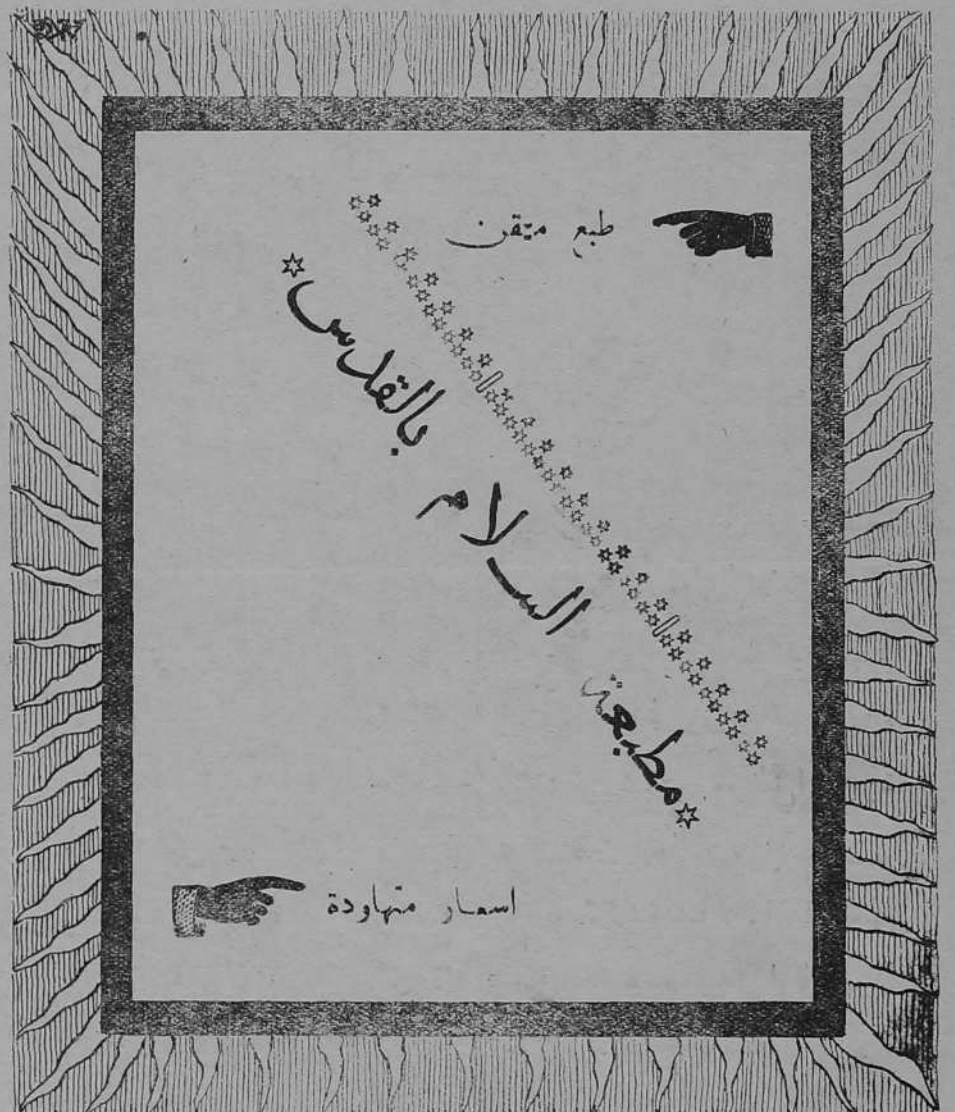 طبع ميتقن
مطبعة السلام بالقدس
اسعار متهاودة